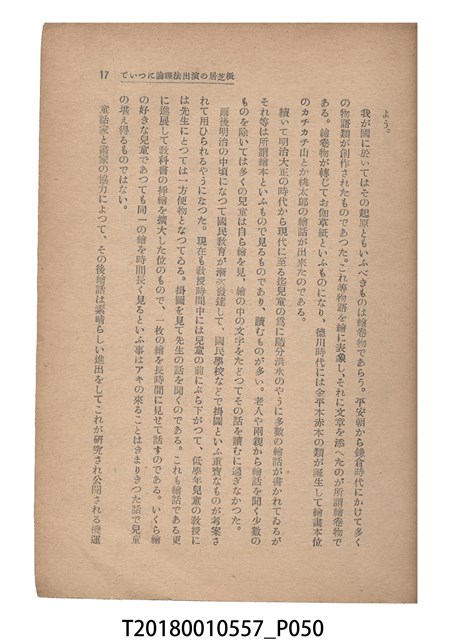 よう。
我が國に於いてはその起原ともいふべきものは繪卷物であらう。平安朝から鎌倉時代にかけて多く
の物語類が創作されたものであつた。これ等物語を繪に表象し、それに文章を添へたのが所謂繪卷物で
ある。繪卷物が轉じてお伽草紙といふものになり、德川時代には金平本赤本の類が誕生して繪畫本位
のカチカチ山とか桃太郎の繪話が出來たのである。
續いて明治大正の時代から現代に至る迄兒童の爲に隨分洪水のやうに多數の繪話が書かれてゐるが
それ等は所謂繪本といふもので見るものであり、讀むものが多い。老人や兩親から繪話を聞く少數の
ものを除いては多くの兒童は自ら繪を見、繪の中の文字をたどつてその話を讀むに過ぎなかつた。
爾後明治の中頃になつて國民敎育が漸次發達して、國民學校などで掛圖といふ重寶なものが考案さ
れて用ひられるやうになつた。現在も敎授時間中には兒童の前にぶら下がつて、低學年兒童の敎授に
は先生にとつては一方便物となつてゐる。掛圖を見て先生の話を聞くのである。これも繪話である更
に進展して敎科書の揷繪を擴大した位のもので、一枚の繪を長時間に見せて話すのである。いくら繪
の好きな兒童であつても同一の繪を時間長く見るといふ事はアキの來ることはきまりきつた話で兒童
の堪え得るものではない。
童話家と畫家の協力によつて、その後繪話は素晴らしい進出をしてこれが硏究され公開される機運
紙芝居の演出法理論について 17
T20180010557_P050